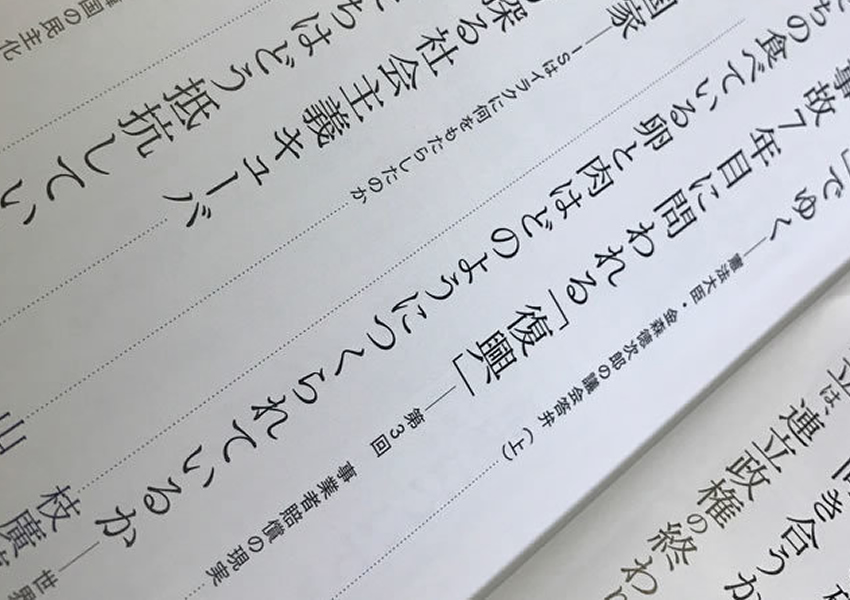 き合うか
は、連立政権の終わり
」でゆく──憲法大臣・金森徳次郎の議会答弁（上）
事故7年目に問われる「復興」──第3回 事業者賠償の現実
ちの食べている卵と肉はどのようにつくられているか 枝廣
──世界
国家──ISはイラクに何をもたらしたのか 山
探る社会主義キューバ
ちはどう抵抗してい
国の民主化